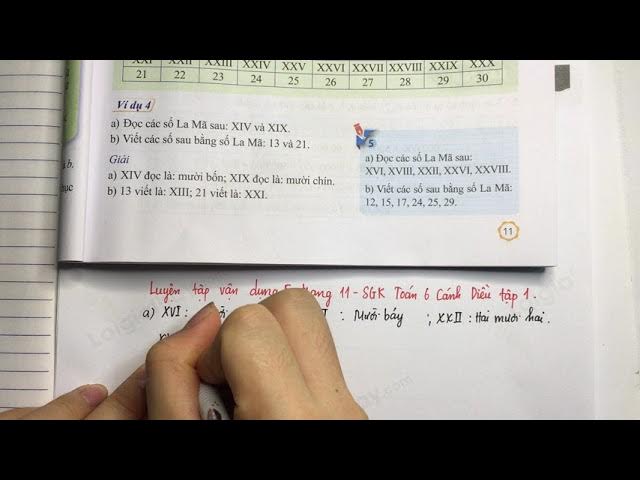 XXI XXII XXIII XXIV XXV XXVI XXVII XXVIII XXIX XXX
21 22 23 24 25 26 27 28 29 30
Ví dụ 4
a) Đọc các số La Mã sau: XIV và XIX.
b) Viết các số sau bằng số La Mã: 13 và 21.
Giải
a) XIV đọc là: mười bốn; XIX đọc là: mười chín.
b) 13 viết là: XIII; 21 viết là: XXI.
5
a) Đọc các số La Mã sau:
XVI, XVIII, XXII, XXVI, XXVIII.
b) Viết các số sau bằng số La Mã:
12, 15, 17, 24, 25, 29.
11
Luyện tập vận dụng 11 - SGK Toán 6 Cánh Diều tập 1.
a) XVI : : Mười bảy ; XXII : Hai mươi hai.